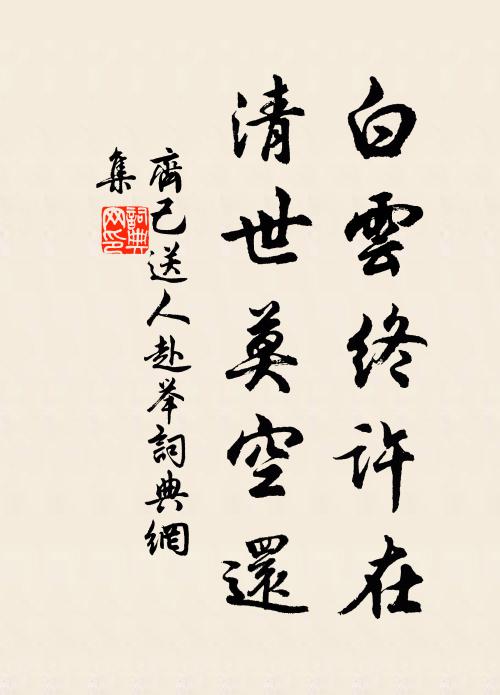 白雲終許在
清世莫空還
齊己送人赴举詞典網
集
詞典網印